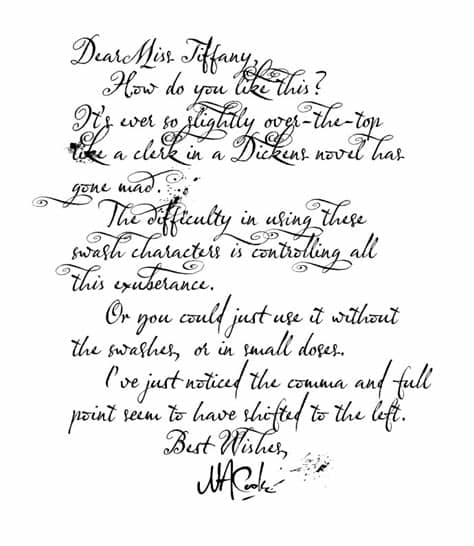 Dear Miss Tiffany,
How do you like this?
It's ever so slightly over-the-top
like a clerk in a Dickens novel has
gone mad.
The difficulty in using these
swash characters is controlling all
this exuberance.
Or you could just use it without
the swashes, or in small doses.
I've just noticed the comma and full
point seem to have shifted to the left.
Best Wishes,
NACooke